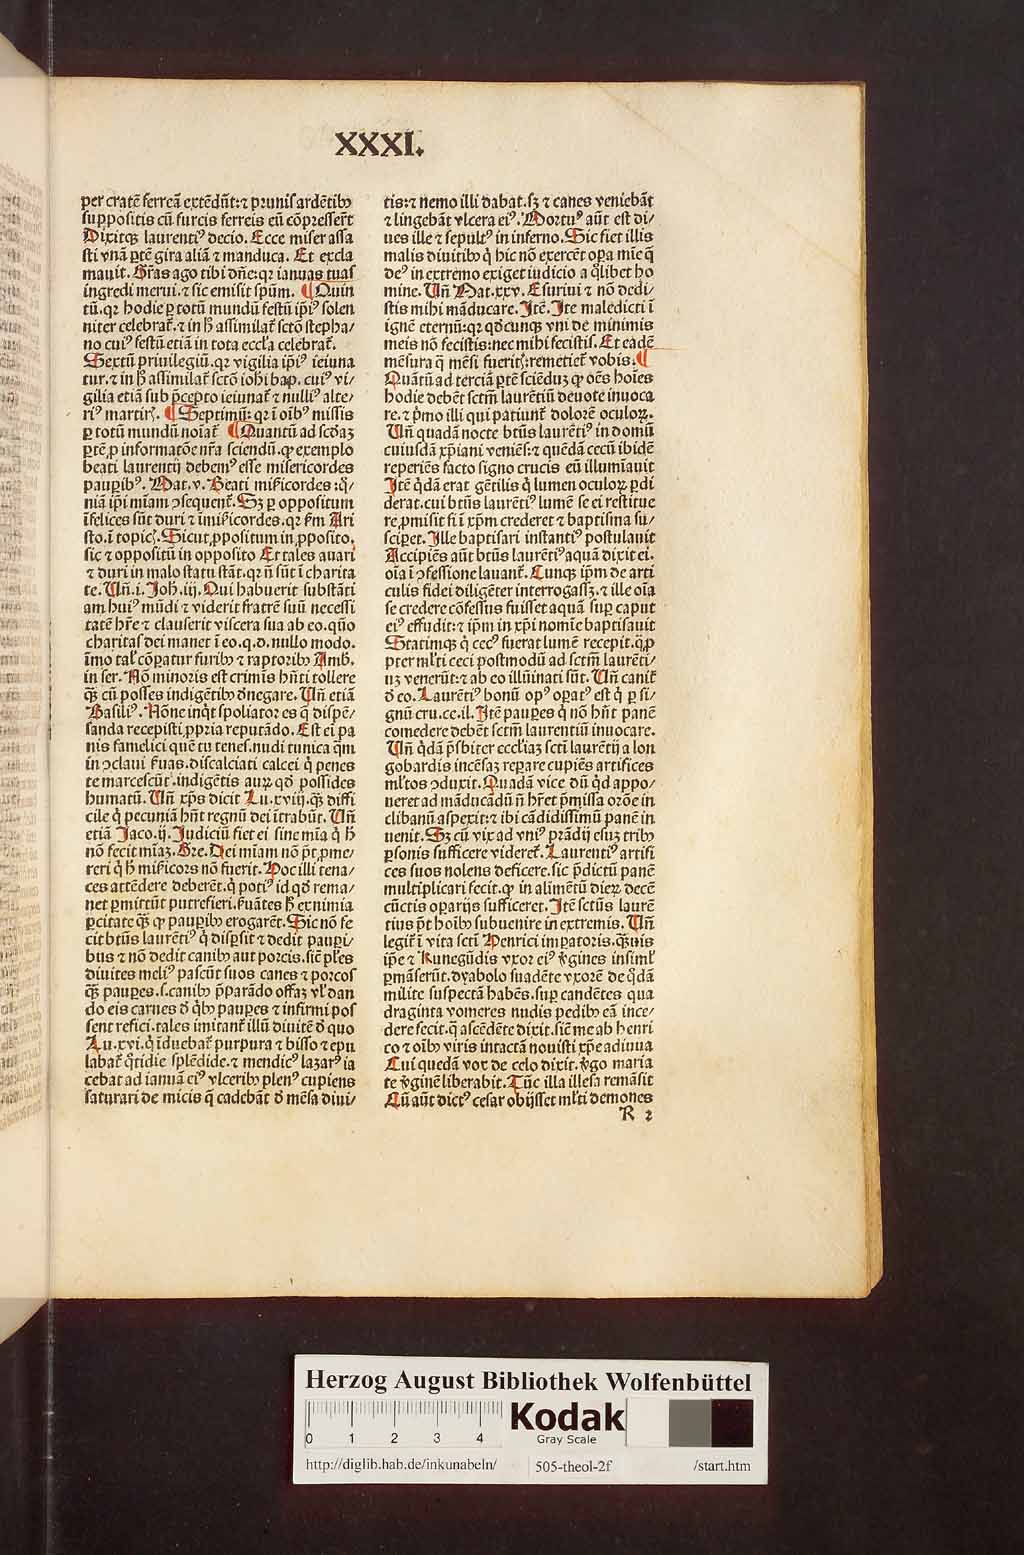 XXXI.
per cratē ferreā extēdūt:⁊ prunis ardētibꝫ
suppositis cū furcis ferreis eū cōpresser̄t
Dixitqꝫ laurentiꝰ decio. Ecce miser assa
sti vnā ꝑtē gira aliā ⁊ manduca. Et excla
mauit. Gr̄as ago tibi dn̄e:qꝛ ianuas tuas
ingredi merui.⁊ sic emisit spūm. ¶ Quin
tū.qꝛ hodie ꝑ totū mundū festū ip̄iꝰ solen
niter celebrat̄.⁊ in h̄ assimilat̄ sctō stepha/
no cuiꝰ festū etiā in tota eccl̄a celebrat̄.
Sextū priuilegiū.qꝛ vigilia ip̄iꝰ ieiuna
tur.⁊ in h̄ assimilat̄ sctō ioh̄i bap. cuiꝰ vi/
gilia etiā sub p̄cepto ieiunat̄ ⁊ nulliꝰ alte/
riꝰ martir̄. ¶ Septimū:qꝛ ī oībꝰ missis
ꝑ totū mundū noīat̄ ¶ Quantū ad scd̄aꝫ
ꝑtē ꝓ informatōe nr̄a sciendū.ꝙ exemplo
beati laurentij debemꝰ esse misericordes
pauꝑibꝰ. Mat.v. Beati mīs̄icordes:qͥ/
niā ip̄i mīam ↄsequent̄. Sꝫ ꝑ oppositum
īfelices sūt duri ⁊ īmis̄icordes.qꝛ ẜm Ari
sto.ī topic̄. Sicut ꝓppositum in ꝓposito.
sic ⁊ oppositū in opposito Et tales auari
⁊ duri in malo statu stāt.qꝛ n̄ sūt ī charita
te. Vn̄.i. Joh̄.iij. Qui habuerit substāti
am huiꝰ mūdi ⁊ viderit fratrē suū necessi
tatē hr̄e ⁊ clauserit viscera sua ab eo.quō
charitas dei manet ī eo.q.d.nullo modo.
īmo tal̄ cōꝑatur furibꝫ ⁊ raptoribꝫ Amb.
in ser. Nō minoris est crimīs hn̄ti tollere
qͣꝫ cū posses indigētibꝫ d̄negare. Vn̄ etiā
Basiliꝰ. Nōne inqͥt spoliator es q̄ dispē/
sanda recepisti ꝓpria reputādo. Est ei pa
nis famelici quē tu tenes.nudi tunica q̄m
in ↄclaui ẜuas.discalciati calcei qͥ penes
te marcescūt.indigētis auꝝ qd̄ possides
humatū. Vn̄ xp̄s dicit Lu.xviij.qͣꝫ diffi
cile qͥ pecuniā hn̄t regnū dei ītrabūt. Vn̄
etiā Jaco.ij. Judiciū fiet ei sine mīa qͥ h̄
nō fecit mīaꝫ. Gre. Dei mīam nō p̄t ꝓme/
reri qͥ h̄ mis̄icors nō fuerit. Hoc illi tena/
ces attēdere deberēt.qͥ potiꝰ id qd̄ rema/
net ꝑmittūt putrefieri.ẜuātes h̄ ex nimia
ꝑcitate qͣꝫ ꝙ pauꝑibꝫ erogarēt. Sic nō fe
cit btūs laurētiꝰ qͥ disꝑsit ⁊ dedit pauꝑi/
bus ⁊ nō dedit canibꝫ aut porcis.siē pl̄es
diuites meliꝰ pascūt suos canes ⁊ porcos
qͣꝫ pauꝑes.s.canibꝫ p̄ꝑādo offaꝫ vl̓ dan
do eis carnes d̄ qͥbꝫ pauꝑes ⁊ infirmi pos
sent refici.tales imitant̄ illū diuitē d̄ quo
Lu.xvi.qͥ īduebat̄ purpura ⁊ bisso ⁊ epu
labat̄ qͦtidie splēdide.⁊ mendicꝰ lazarꝰ ia
cebat ad ianuā eiꝰ vlceribꝫ plenꝰ cupiens
saturari de micis q̄ cadebāt d̄ mēsa diui/
tis:⁊ nemo illi dabat.sꝫ ⁊ canes veniebāt
⁊ lingebāt vlcera eiꝰ. Mortuꝰ aūt est di/
ues ille ⁊ sepultꝰ in inferno. Sic fiet illis
malis diuitibꝫ qͥ hic nō exercēt oꝑa mīe q̄
deꝰ in extremo exiget iudicio a qͦlibet ho
mine. Vn̄ Mat.xxv. Esuriui ⁊ nō dedi/
stis mihi māducare. Itē. Ite maledicti ī
ignē eternū:qꝛ qd̄cunqꝫ vni de minimis
meis nō fecistis:nec mihi fecistis. Et eadē
mēsura q̄ mēsi fuerit̄:remetiet̄ vobis. ¶
Quātū ad terciā ꝑtē sciēduꝫ ꝙ oēs hoīes
hodie debēt sctm̄ laurētiū deuote inuoca
re.⁊ pͥmo illi qui patiunt̄ dolorē oculoꝝ.
Vn̄ quadā nocte btūs laurētiꝰ in domū
cuiusdā xp̄iani veniēs:⁊ quēdā cecū ibidē
reperiēs facto signo crucis eū illumīauit
Itē qͥdā erat gētilis qͥ lumen oculoꝝ ꝑdi
derat.cui btūs laurētiꝰ lumē se ei restitue
re ꝓmisit si ī xp̄m crederet ⁊ baptisma su/
sciꝑet. Ille baptisari instantiꝰ postulauit
Accipiēs aūt btūs laurētiꝰ aquā dixit ei.
oīa ī ↄfessione lauant̄. Cunqꝫ ip̄m de arti
culis fidei diligēter interrogassꝫ.⁊ ille oīa
se credere cōfessus fuisset aquā suꝑ caput
eiꝰ effudit:⁊ ip̄m in xp̄i nomīe baptisauit
Statimqꝫ qͥ cecꝰ fuerat lumē recepit.qͣꝓ
pter ml̓ti ceci postmodū ad sctm̄ laurēti/
uꝫ venerūt:⁊ ab eo illūinati sūt. Vn̄ canit̄
d̄ eo. Laurētiꝰ bonū opꝰ oꝑatꝰ est qͥ ꝑ si/
gnū cru.ce.il. Itē pauꝑes qͥ nō hn̄t panē
comedere debēt sctm̄ laurentiū inuocare.
Vn̄ qͥdā p̄sbiter eccl̓iaꝫ sctī laurētij a lon
gobardis incēsaꝫ reꝑare cupiēs artifices
ml̓tos ↄduxit. Quadā vice dū qͥd appo/
ueret ad māducādū n̄ hr̄et p̄missa orōe in
clibanū aspexit:⁊ ibi cādidissimū panē in
uenit. Sꝫ cū vix ad vniꝰ prādij esuꝫ tribꝫ
ꝑsonis sufficere videret̄. Laurentiꝰ artifi
ces suos nolens deficere.sic p̄dictū panē
multiplicari fecit.ꝙ in alimētū dieꝝ decē
cūctis oꝑarijs sufficeret. Itē sctūs laurē
tius p̄t hoībꝫ subuenire in extremis. Vn̄
legit̄ ī vita sctī Henrici imꝑatoris.qͣꝫuis
ip̄e ⁊ Kunegūdis vxor eiꝰ v̄gines insiml̓
ꝑmāserūt.dyabolo suadēte vxorē de qͦdā
milite suspectā habēs.suꝑ candētes qua
draginta vomeres nudis pedibꝫ eā ince/
dere fecit.q̄ ascēdēte dixit.siē me ab henri
co ⁊ oībꝫ viris intactā nouisti xp̄e adiuua
Cui quedā vox de celo dixit.v̄go maria
te v̄ginē liberabit. Tūc illa illesa remāsit
Cū aūt dictꝰ cesar obijsset ml̓ti demones
R 2
Herzog August Bibliothek Wolfenbüttel
0 1 2 3 4
Kodak
Gray Scale
http://diglib.hab.de/inkunabeln/ 505-theol-2f /start.htm